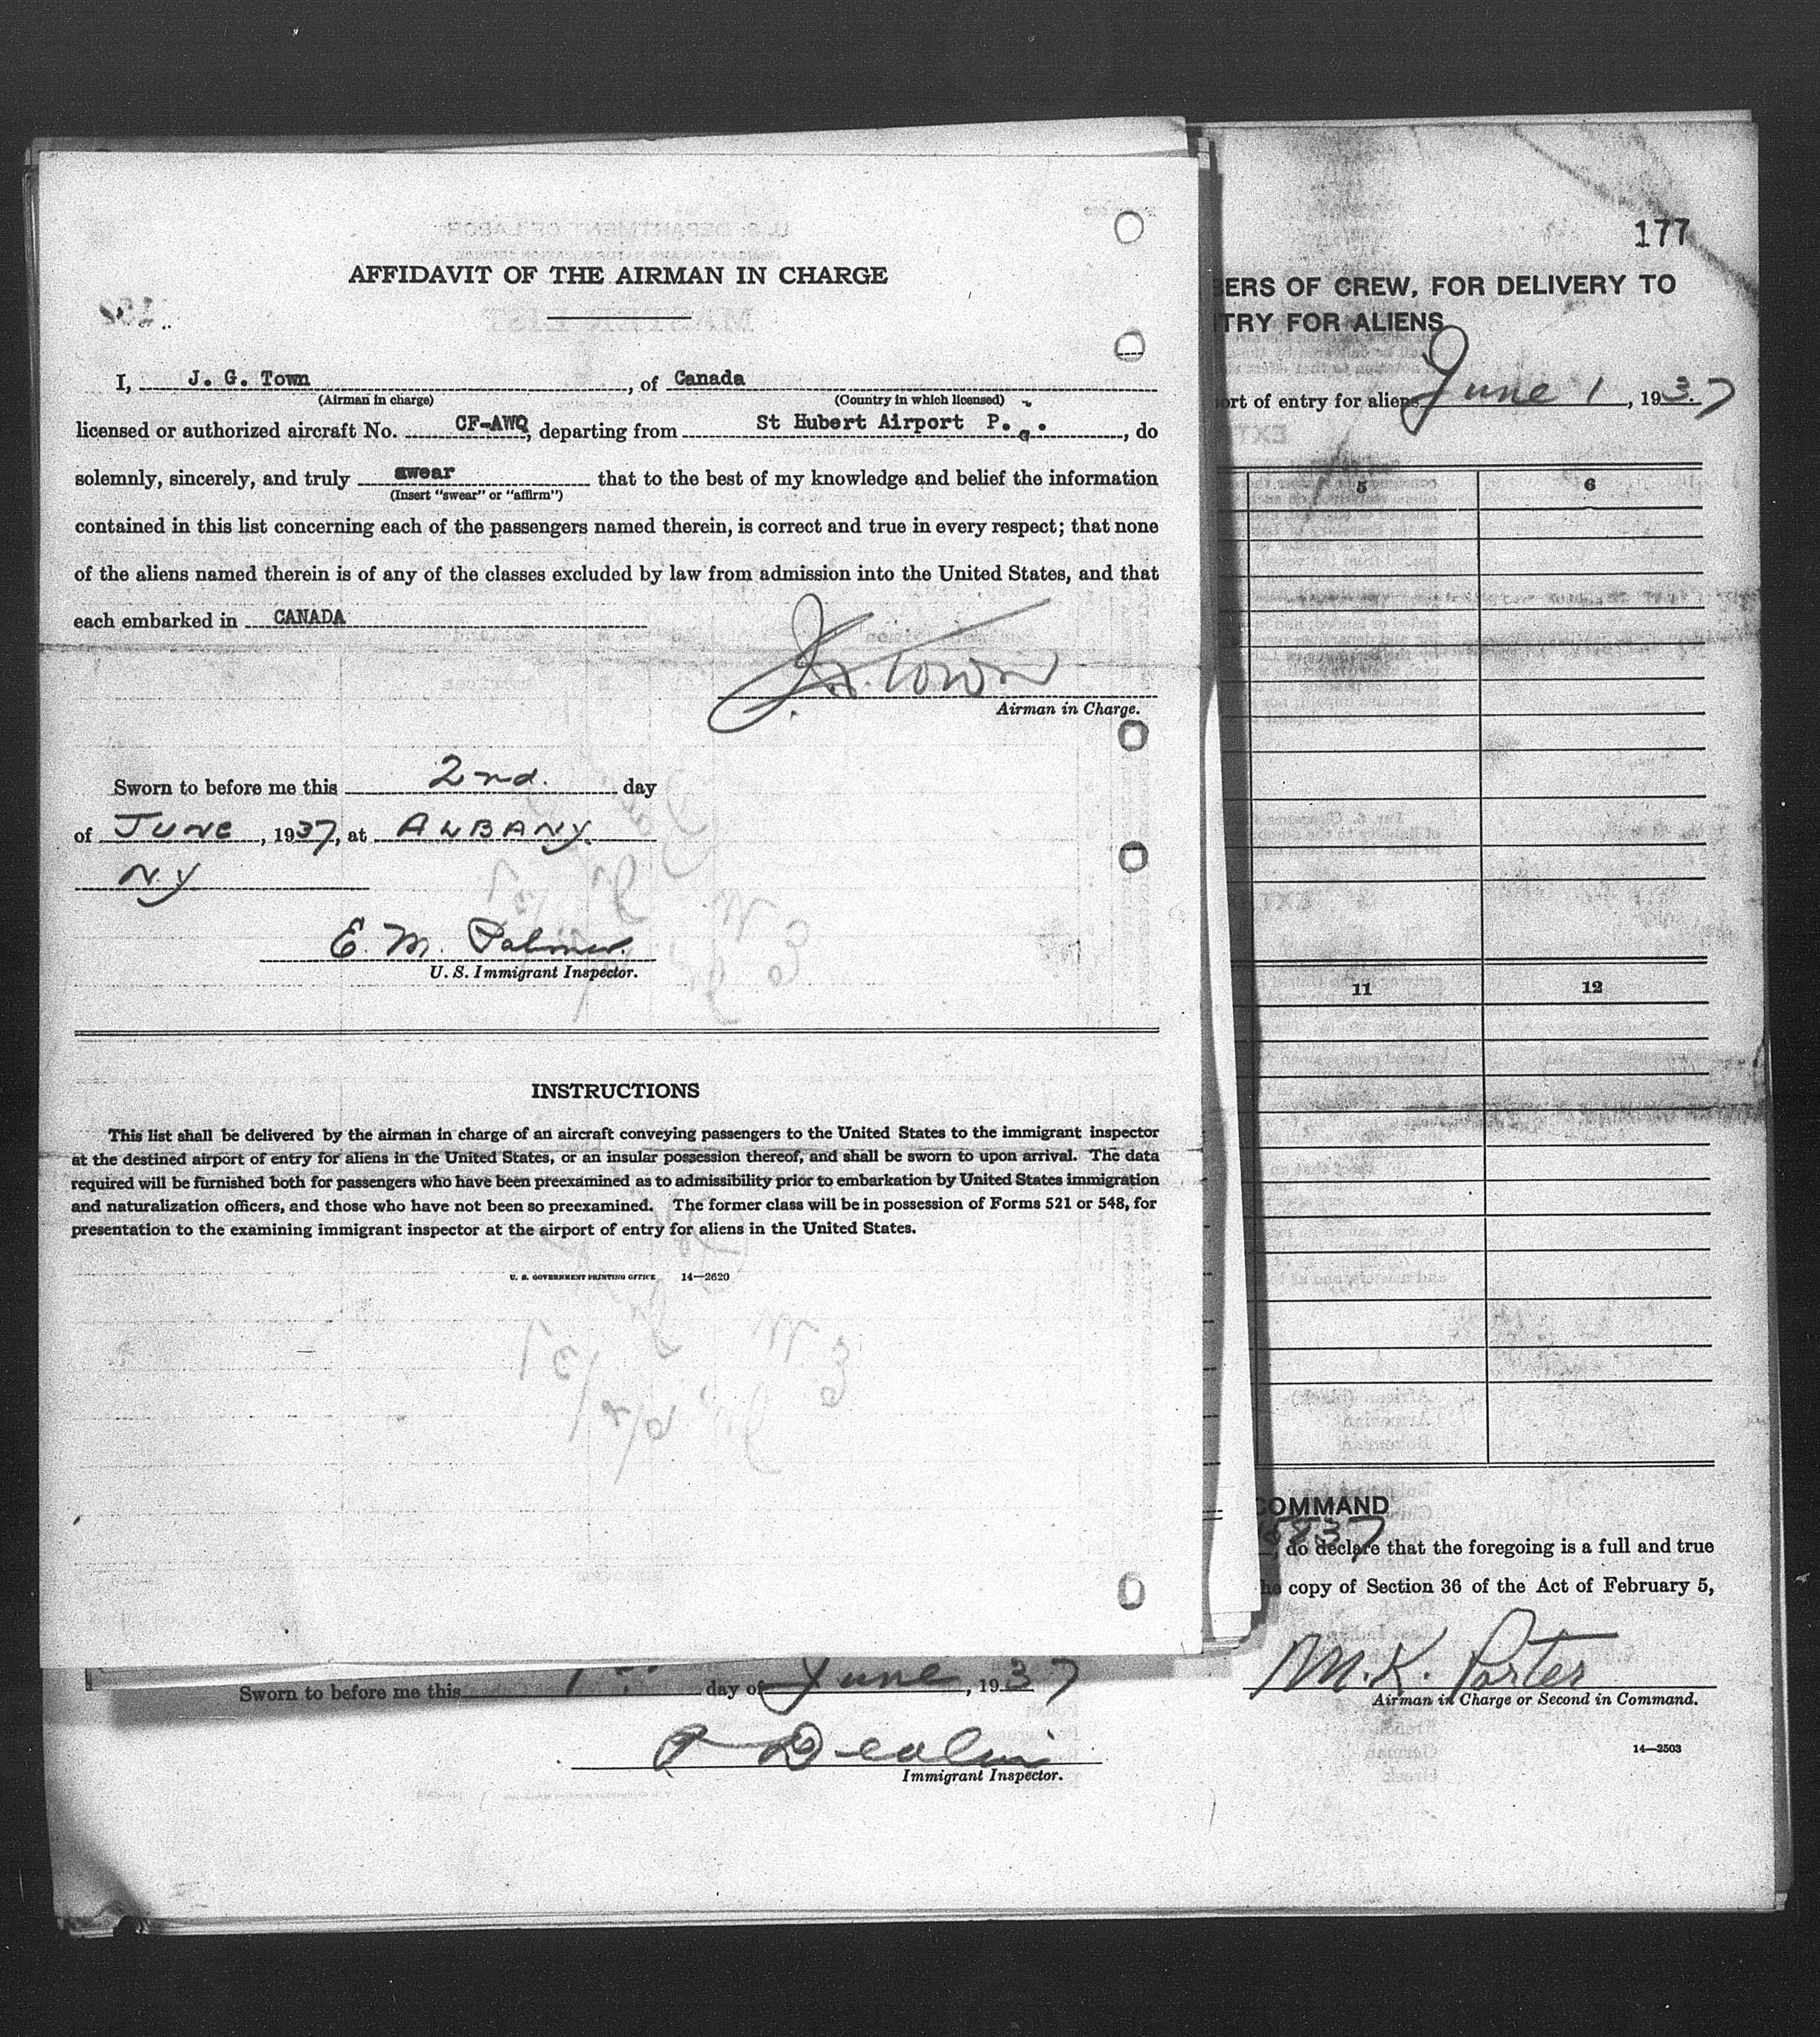 AFFIDAVIT OF THE AIRMAN IN CHARGE
I, J. G. Town, of Canada
(Airman in charge) (Country in which licensed)
licensed or authorized aircraft No. CF-AWQ, departing from St Hubert Airport P. Q., do
solemnly, sincerely, and truly swear that to the best of my knowledge and belief the information
(Insert "swear" or "affirm")
contained in this list concerning each of the passengers named therein, is correct and true in every respect; that none
of the aliens named therein is of any of the classes excluded by law from admission into the United States, and that
each embarked in CANADA
J. G. Town
Airman in Charge.
Sworn to before me this 2nd. day
of JUNE, 1937, at ALBANY.
N.Y
E. M. Palmer.
U. S. Immigrant Inspector.
INSTRUCTIONS
This list shall be delivered by the airman in charge of an aircraft conveying passengers to the United States to the immigrant inspector
at the destined airport of entry for aliens in the United States, or an insular possession thereof, and shall be sworn to upon arrival. The data
required will be furnished both for passengers who have been preexamined as to admissibility prior to embarkation by United States immigration
and naturalization officers, and those who have not been so preexamined. The former class will be in possession of Forms 521 or 548, for
presentation to the examining immigrant inspector at the airport of entry for aliens in the United States.
U. S. GOVERNMENT PRINTING OFFICE 14—2620
177
BERS OF CREW, FOR DELIVERY TO
TRY FOR ALIENS
ort of entry for aliens June 1, 1937
5 6
11 12
COMMAND
, do declare that the foregoing is a full and true
he copy of Section 36 of the Act of February 5,
M. K. Porter
Airman in Charge or Second in Command.
14—2503
Sworn to before me this day of June, 1937
Immigrant Inspector.